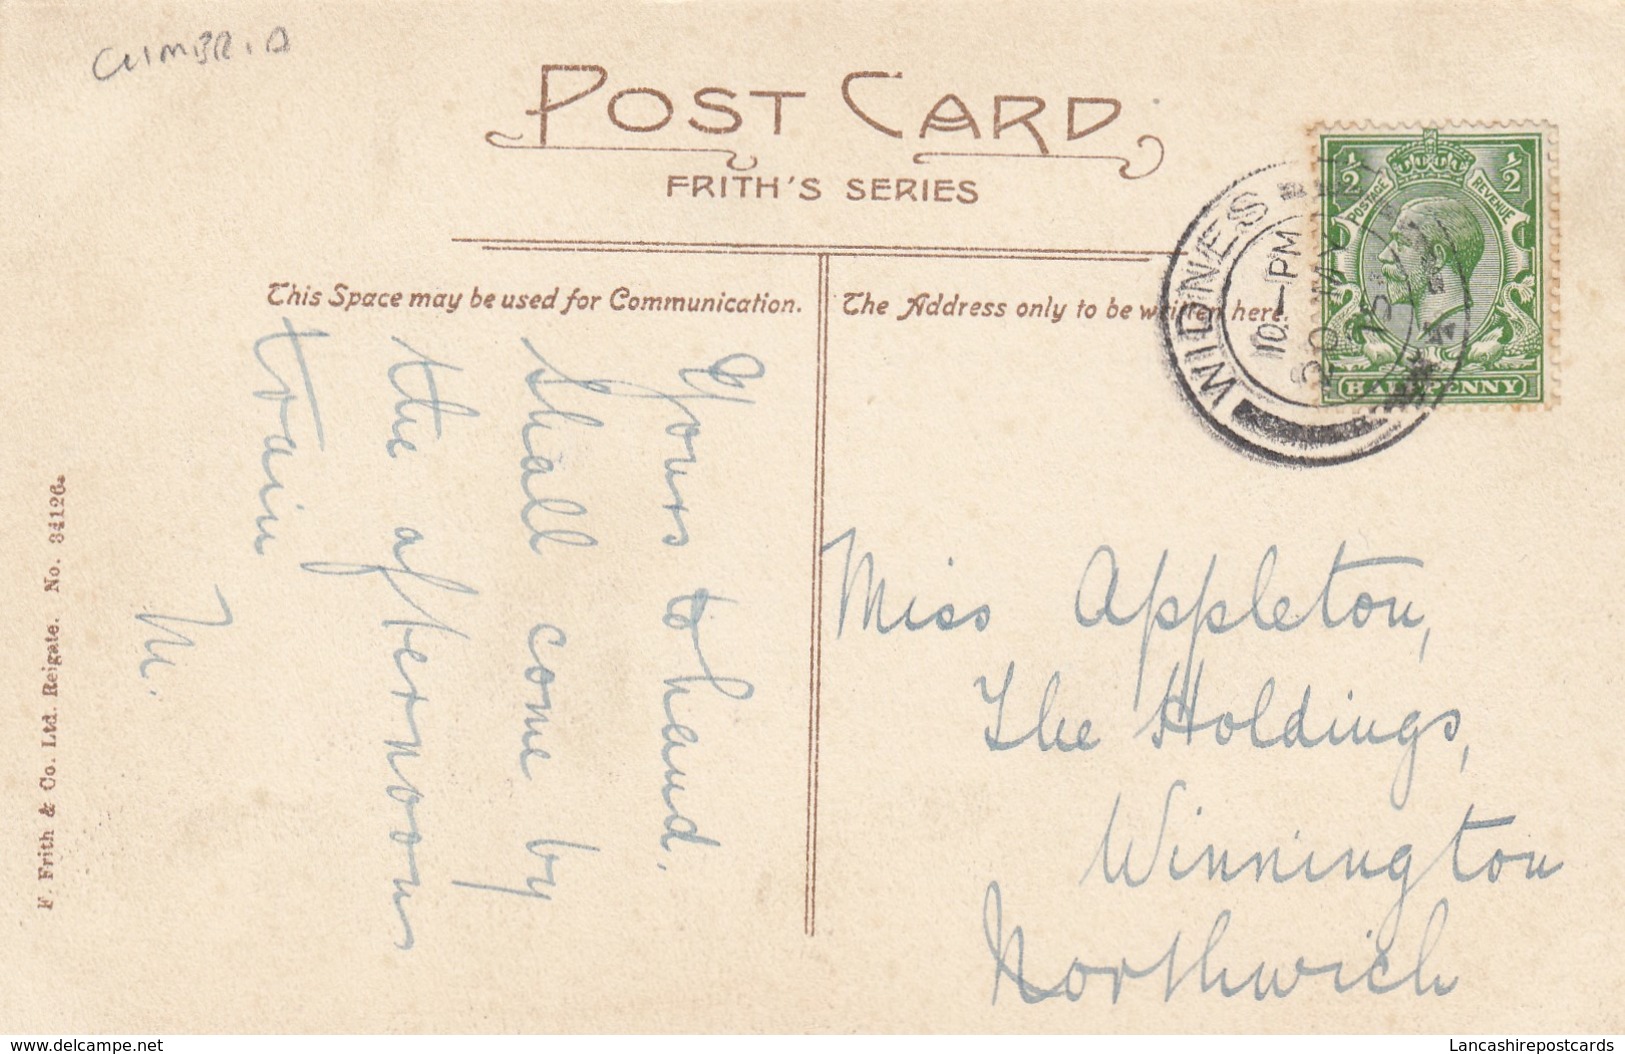 CUMBRIA
POST CARD
FRITH'S SERIES
This Space may be used for Communication.
The Address only to be written here.
½ ½
POSTAGE REVENUE
HALFPENNY
WIDNES
10 - PM
20 MY
13
Yours to hand.
Shall come by
the afternoon
train
M.
Miss Appleton,
The Holdings,
Winnington
Northwich
F. Frith & Co. Ltd. Reigate. No. 34126.
delcampe.net
Lancashirepostcards